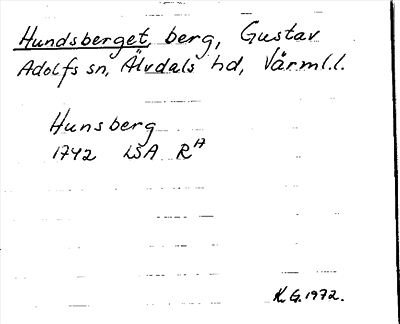 Hundsberget, berg, Gustav
Adolfs sn, Älvdals hd, Värml.l.
Hunsberg
1742 LSA RA
K.G.1972.